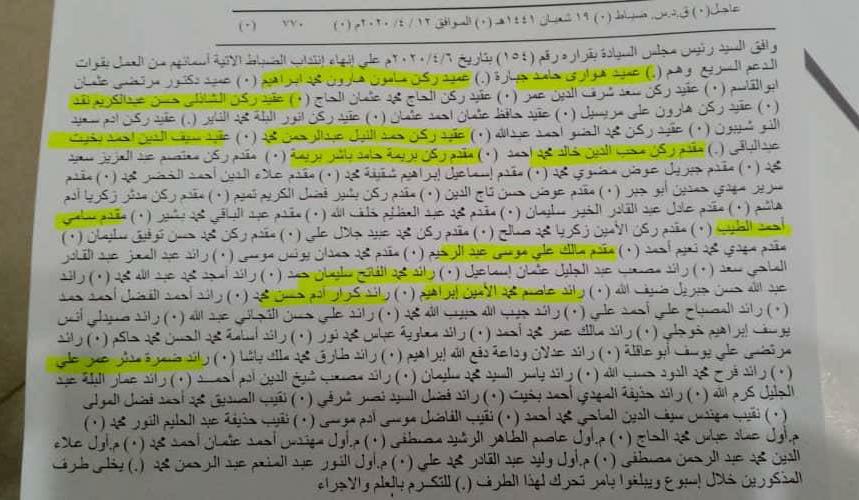 عاجل(٠) ق.د.س. ضباط (٠) ١٩ شعبان ١٤٤١هـ (٠) الموافق ١٢ / ٤ / ٢٠٢٠م (٠) ٧٧٠ (٠)
وافق السيد رئيس مجلس السيادة بقراره رقم (١٥٤) بتاريخ ٢٠٢٠/٤/٦م علي إنهاء إنتداب الضباط الاتية أسمائهم من العمل بقوات
الدعم السريع وهم (.) عميد هواري حامد جبارة (.) عميد ركن مامون هارون محمد ابراهيم (٠) عميد دكتور مرتضي عثمان
ابوالقاسم (٠) عقيد ركن سعد شرف الدين عمر (٠) عقيد ركن الحاج محمد عثمان الحاج (٠) عقيد ركن الشاذلي حسن عبدالكريم نقد
(٠) عقيد ركن هارون علي مريسيل (٠) عقيد حافظ عثمان احمد عثمان (٠) عقيد ركن انور البلة محمد الناير (.) عقيد ركن ادم سعيد
النو شيبون (٠) عقيد ركن محمد الضو احمد عبدالله (٠) عقيد ركن حمد النيل عبدالرحمن محمد (٠) عقيد سيف الدين احمد بخيت
عبدالباقي (.) مقدم ركن محب الدين خالد محمد احمد (٠) مقدم ركن بريمة حامد باشر بريمة (٠) مقدم ركن معتصم عبد العزيز سعيد
محمد (٠) مقدم جبريل عوض مضوي محمد (٠) مقدم إسماعيل إبراهيم شقيفة محمد (٠) مقدم علاء الدين أحمد الخضر محمد (٠) مقدم
سرير مهدي حمدين أبو جبر (٠) مقدم عوض حسن تاج الدين (٠) مقدم ركن بشير فضل الكريم تميم (٠) مقدم ركن مدثر زكريا أدم
هاشم (٠) مقدم عادل عبد القادر الخير سليمان (٠) مقدم محمد عبد العظيم خلف الله (٠) مقدم عبد الباقي محمد بشير (٠) مقدم سامي
أحمد الطيب (٠) مقدم ركن الأمين زكريا محمد صالح (٠) مقدم ركن محمد عبيد جلال علي (٠) مقدم ركن محمد حسن توفيق سليمان (٠)
مقدم مهدي محمد نعيم أحمد (٠) مقدم مالك علي موسى عبد الرحيم (٠) مقدم محمد حمدان يونس موسى (٠) رائد عبد المعز عبد القادر
الماحي سعد (٠) رائد مصعب عبد الجليل عثمان إسماعيل (٠) رائد محمد الفاتح سليمان حمد (٠) رائد أمجد محمد عبد الله محمد (٠) رائد
عبد الله حسن جبريل ضيف الله (٠) رائد عاصم محمد الأمين إبراهيم (٠) رائد كرار آدم حسن محمد (٠) رائد أحمد الفضل أحمد حمد
(٠) رائد المصباح علي أحمد علي (٠) رائد جيب الله حبيب الله محمد (٠) رائد علي حسن التجاني عبد الله (٠) رائد صيدلي أنس
يوسف إبراهيم خوجلي (٠) رائد مالك عمر محمد أحمد (٠) رائد معاوية عباس محمد نور (٠) رائد أسامة محمد الحسن محمد حاكم (٠) رائد
مرتضى علي يوسف أبوعاقلة (٠) رائد عدلان وداعة دفع الله إبراهيم (٠) رائد طارق محمد ملك باشا (٠) رائد ضمرة مدثر عمر علي
(٠) رائد فرح محمد الدود حسب الله (٠) رائد ياسر السيد محمد سليمان (٠) رائد مصعب شيخ الدين آدم أحمد (٠) رائد عمار البلة عبد
الجليل كرم الله (٠) رائد حذيفة المهدي أحمد بخيت (٠) رائد فضل السيد نصر شرفي (٠) نقيب الصديق محمد أحمد فضل المولى
(٠) نقيب مهندس سيف الدين الماحي محمد أحمد (٠) نقيب الفاضل موسى آدم موسى (٠) نقيب حذيفة عبد الحليم النور محمد (٠)
م.أول عماد عباس محمد الحاج (٠) م.أول عاصم الطاهر الرشيد مصطفى (٠) م.أول مهندس أحمد عثمان أحمد محمد (٠) م.أول علاء
الدين محمد عبد الرحمن مصطفى (٠) م.أول وليد عبد القادر محمد علي (٠) م.أول النور عبد المنعم عبد الرحمن محمد (.) يخلى طرف
المذكورين خلال إسبوع ويبلغوا بامر تحرك لهذا الطرف (.) للتكرم بالعلم والاجراء